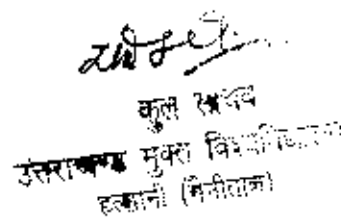 कुल सचिव
उत्तराखण्ड मुक्त विश्वविद्यालय
हल्द्वानी (नैनीताल)